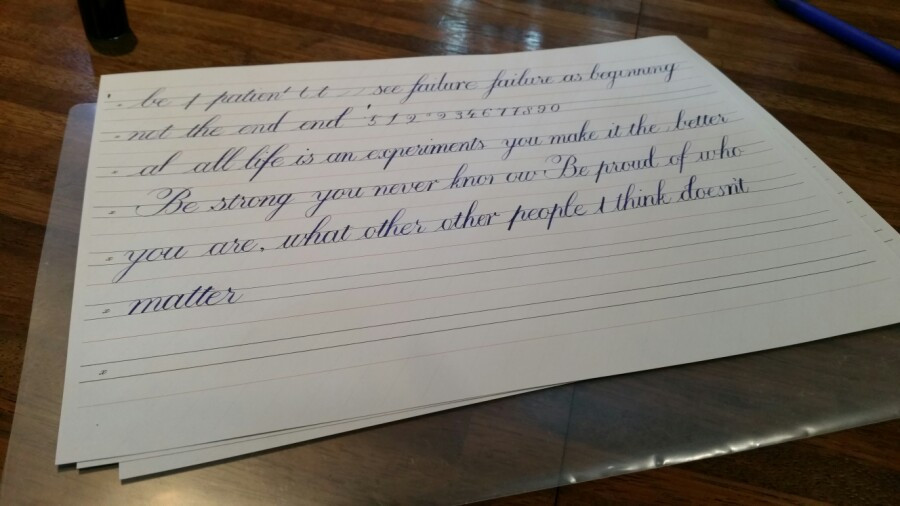 be patient t t see failure failure as beginning
not the end end 5 1 2 2 9 3 4 6 7 7 8 9 0
al all life is an experiments you make it the better
Be strong you never knor ow Be proud of who
you are, what other other people t think doesn't
matter